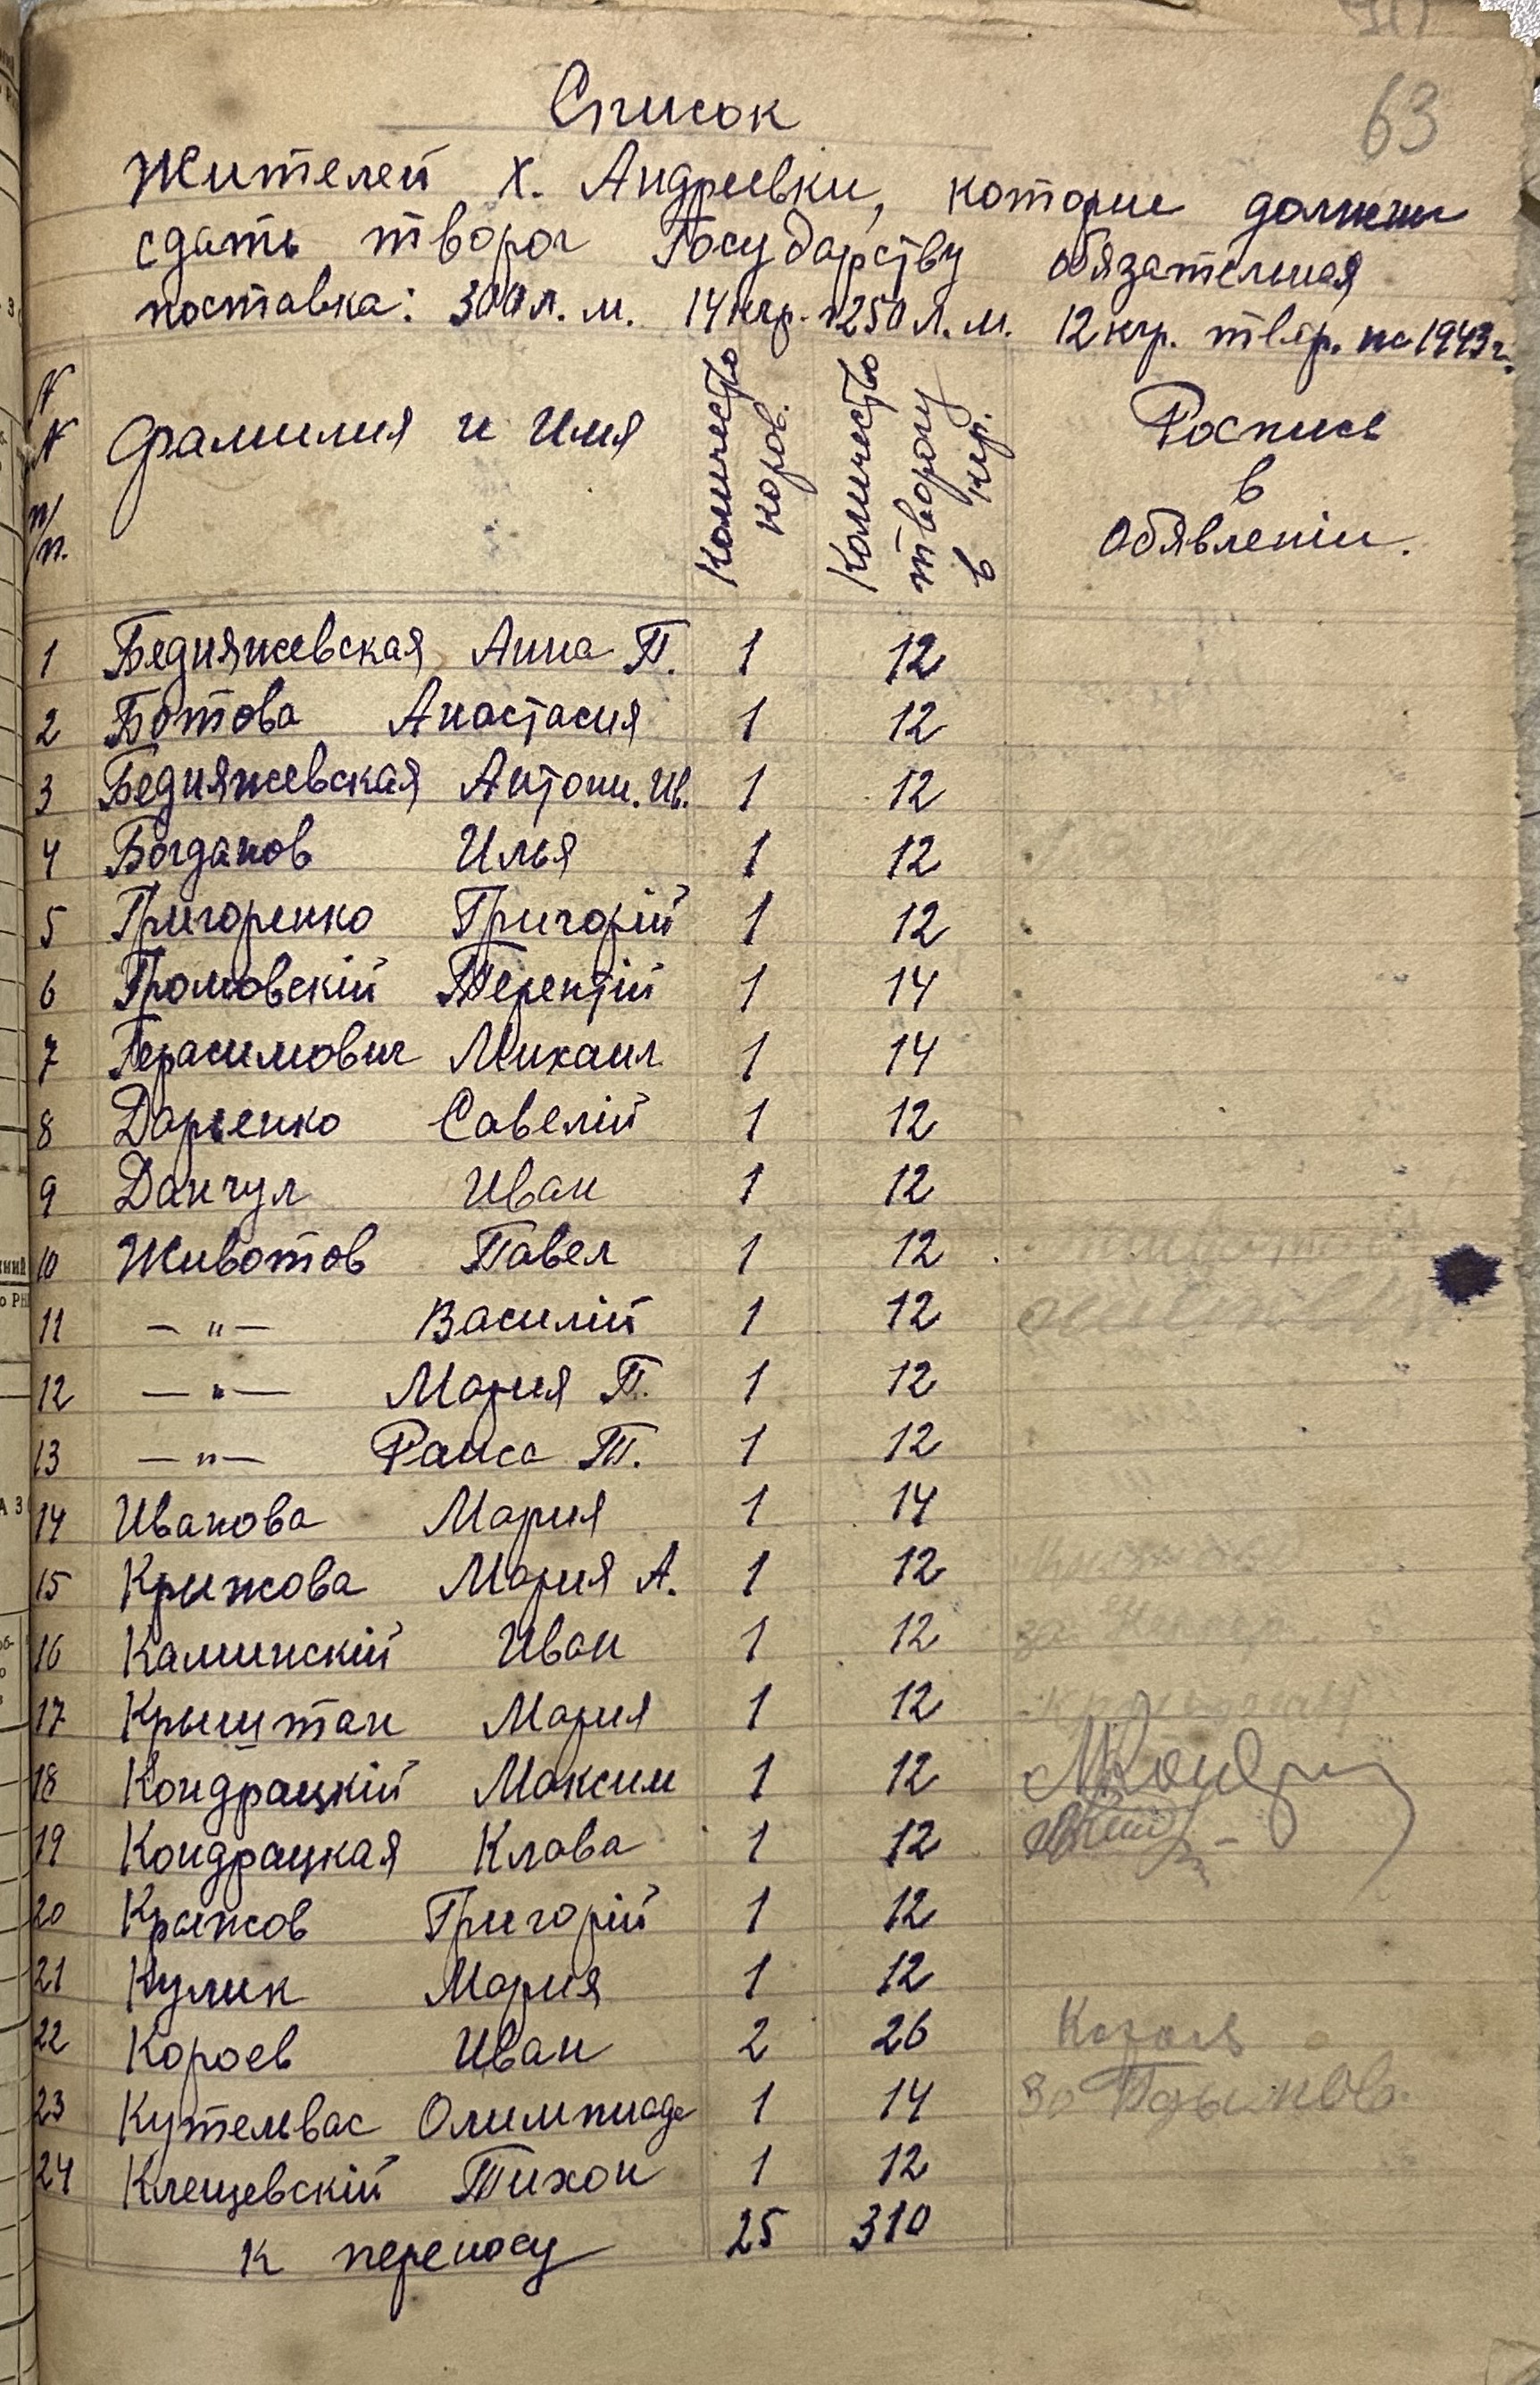 63
Список
Жителей х. Андреевки, которые должны
сдать творог Государству обязательная
поставка: 300 л. м. 14 кгр. и 250 л. м. 12 кгр. твор. на 1943 г.
№ № п/п. Фамилия и Имя Количество коров. Количество творогу в кгр. Роспись в обявленіи.
1 Бедняжевская Анна П. 1 12
2 Ботова Анастасия 1 12
3 Бедняжевская Антони. Ив. 1 12
4 Богданов Илья 1 12
5 Григоренко Григорій 1 12
6 Громовскій Терентій 1 14
7 Герасимович Михаил 1 14
8 Дарьенко Савелій 1 12
9 Данчул Иван 1 12
10 Животов Павел 1 12
11 — " — Василій 1 12
12 — " — Мария П. 1 12
13 — " — Раиса Т. 1 12
14 Иванова Мария 1 14
15 Крыжова Мария А. 1 12
16 Каминскій Иван 1 12 за
17 Крыштан Мария 1 12
18 Кондрацкій Максим 1 12
19 Кондрацкая Клава 1 12
20 Крыжов Григорій 1 12
21 Кулик Мария 1 12
22 Короев Иван 2 26
23 Кутельвас Олимпиада 1 14
24 Клещевскій Тихон 1 12
к переносу 25 310